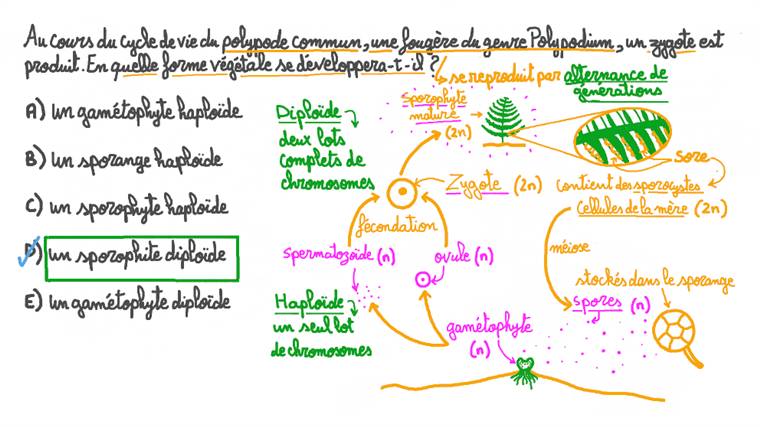 Au cours du cycle de vie du polypode commun, une fougère du genre Polypodium, un zygote est
produit. En quelle forme végétale se développera-t-il ?
se reproduit par alternance de
générations
A) un gamétophyte haploïde
B) un sporange haploïde
C) un sporophyte haploïde
D) un sporophite diploïde
E) un gamétophyte diploïde
Diploïde
deux lots
complets de
chromosomes
sporophyte
mature
(2n)
sore
Zygote (2n)
contient des sporocystes
Cellules de la mère (2n)
fécondation
spermatozoïde (n)
ovule (n)
méiose
stockés dans le sporange
spores (n)
Haploïde
un seul lot
de chromosomes
gamétophyte
(n)